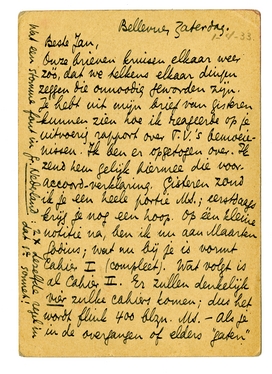 Bellevue Zaterdag.
1-4-33
Beste Jan,
Onze brieven kruisen elkaar weer
zóó, dat we telkens elkaar dingen
zeggen die onnoodig geworden zijn.
Je hebt uit mijn brief van gisteren
kunnen zien hoe ik reageerde op je
uitvoerig rapport over T.V.'s bemoeie-
nissen. Ik ben er opgetogen over. Ik
zend hem gelijk hiermee die voor-
accoord-verklaring. Gisteren zond
ik je een heele portie Ms.; eerstdaags
krijg je nog een hoop. Op een kleine
notitie na, hen ik nu aan Maarten
wat nu bij je is vormt
Cahier I (compleet). Wat volgt is
al Cahier II. Er zullen denkelijk
vier zulke cahiers komen; dus het
wordt flink 400 blzn. Ms. — Als je
in de overgangen of elders "gaten"
Wat een stomme fout in Gr. Nederland: 2 x dezelfde regel in
dat 1e sonnet!